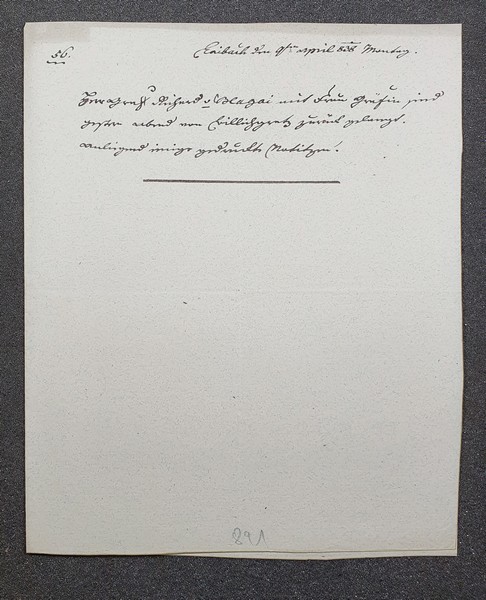 56.
Laibach den 9ten april 838 Montag.
Herr Graf Richard v Blagai mit Frau Gräfin, sind
gestern abend von Billichgratz zurück gelangt.
anliegend einige gedruckte Notitzen.
891